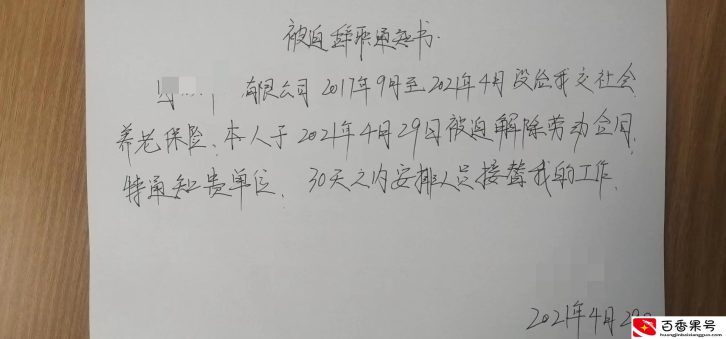 被迫辞职通知书
有限公司2017年9月至2021年4月没给我交社会
养老保险、本人于2021年4月29日被迫解除劳动合同、
特通知贵单位、30天之内安排人员接替我的工作、
2021年4月29日
百香果号
huangjinbaixiangguo.com